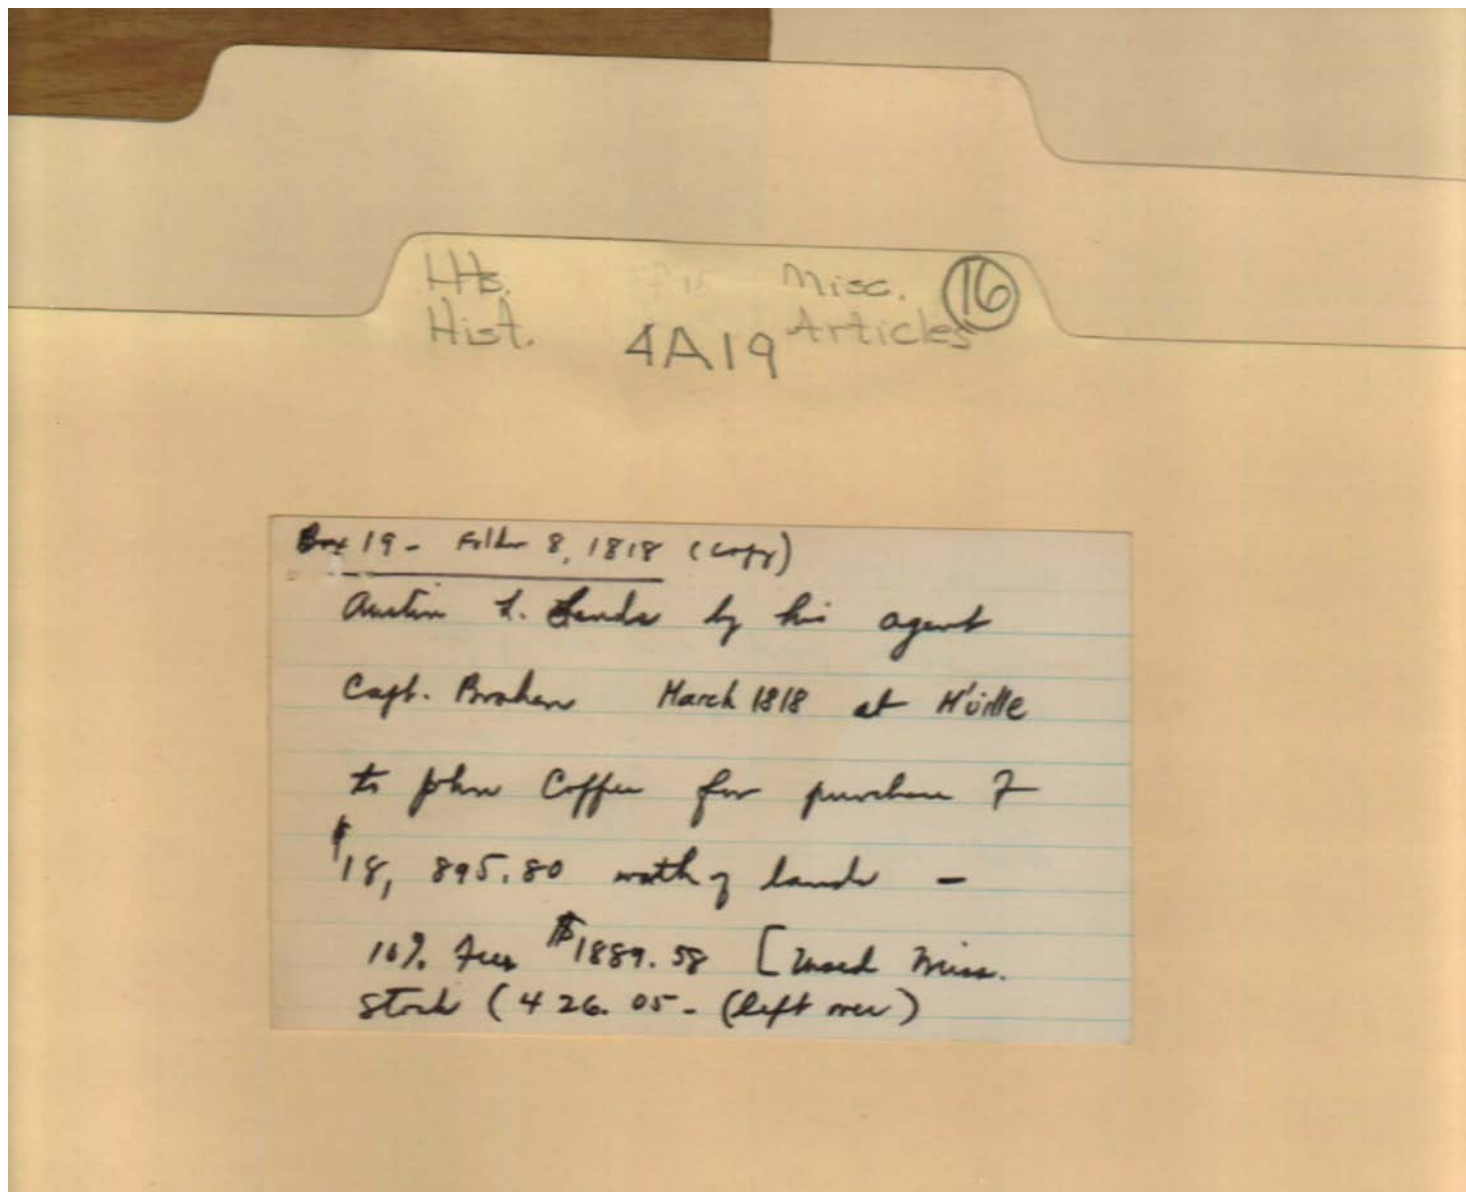 Hts. Misc. 16
Hist. 4A19 Articles
Box 19 - Folder 8, 1818 (copy)
Austin L. by his agent
Capt. March 1818 at H'ville
to John Coffee for purchase of
$18,895.80 worth of lands -
10% fees $1889.58 [used Miss.
stock (426.05 - (left over)